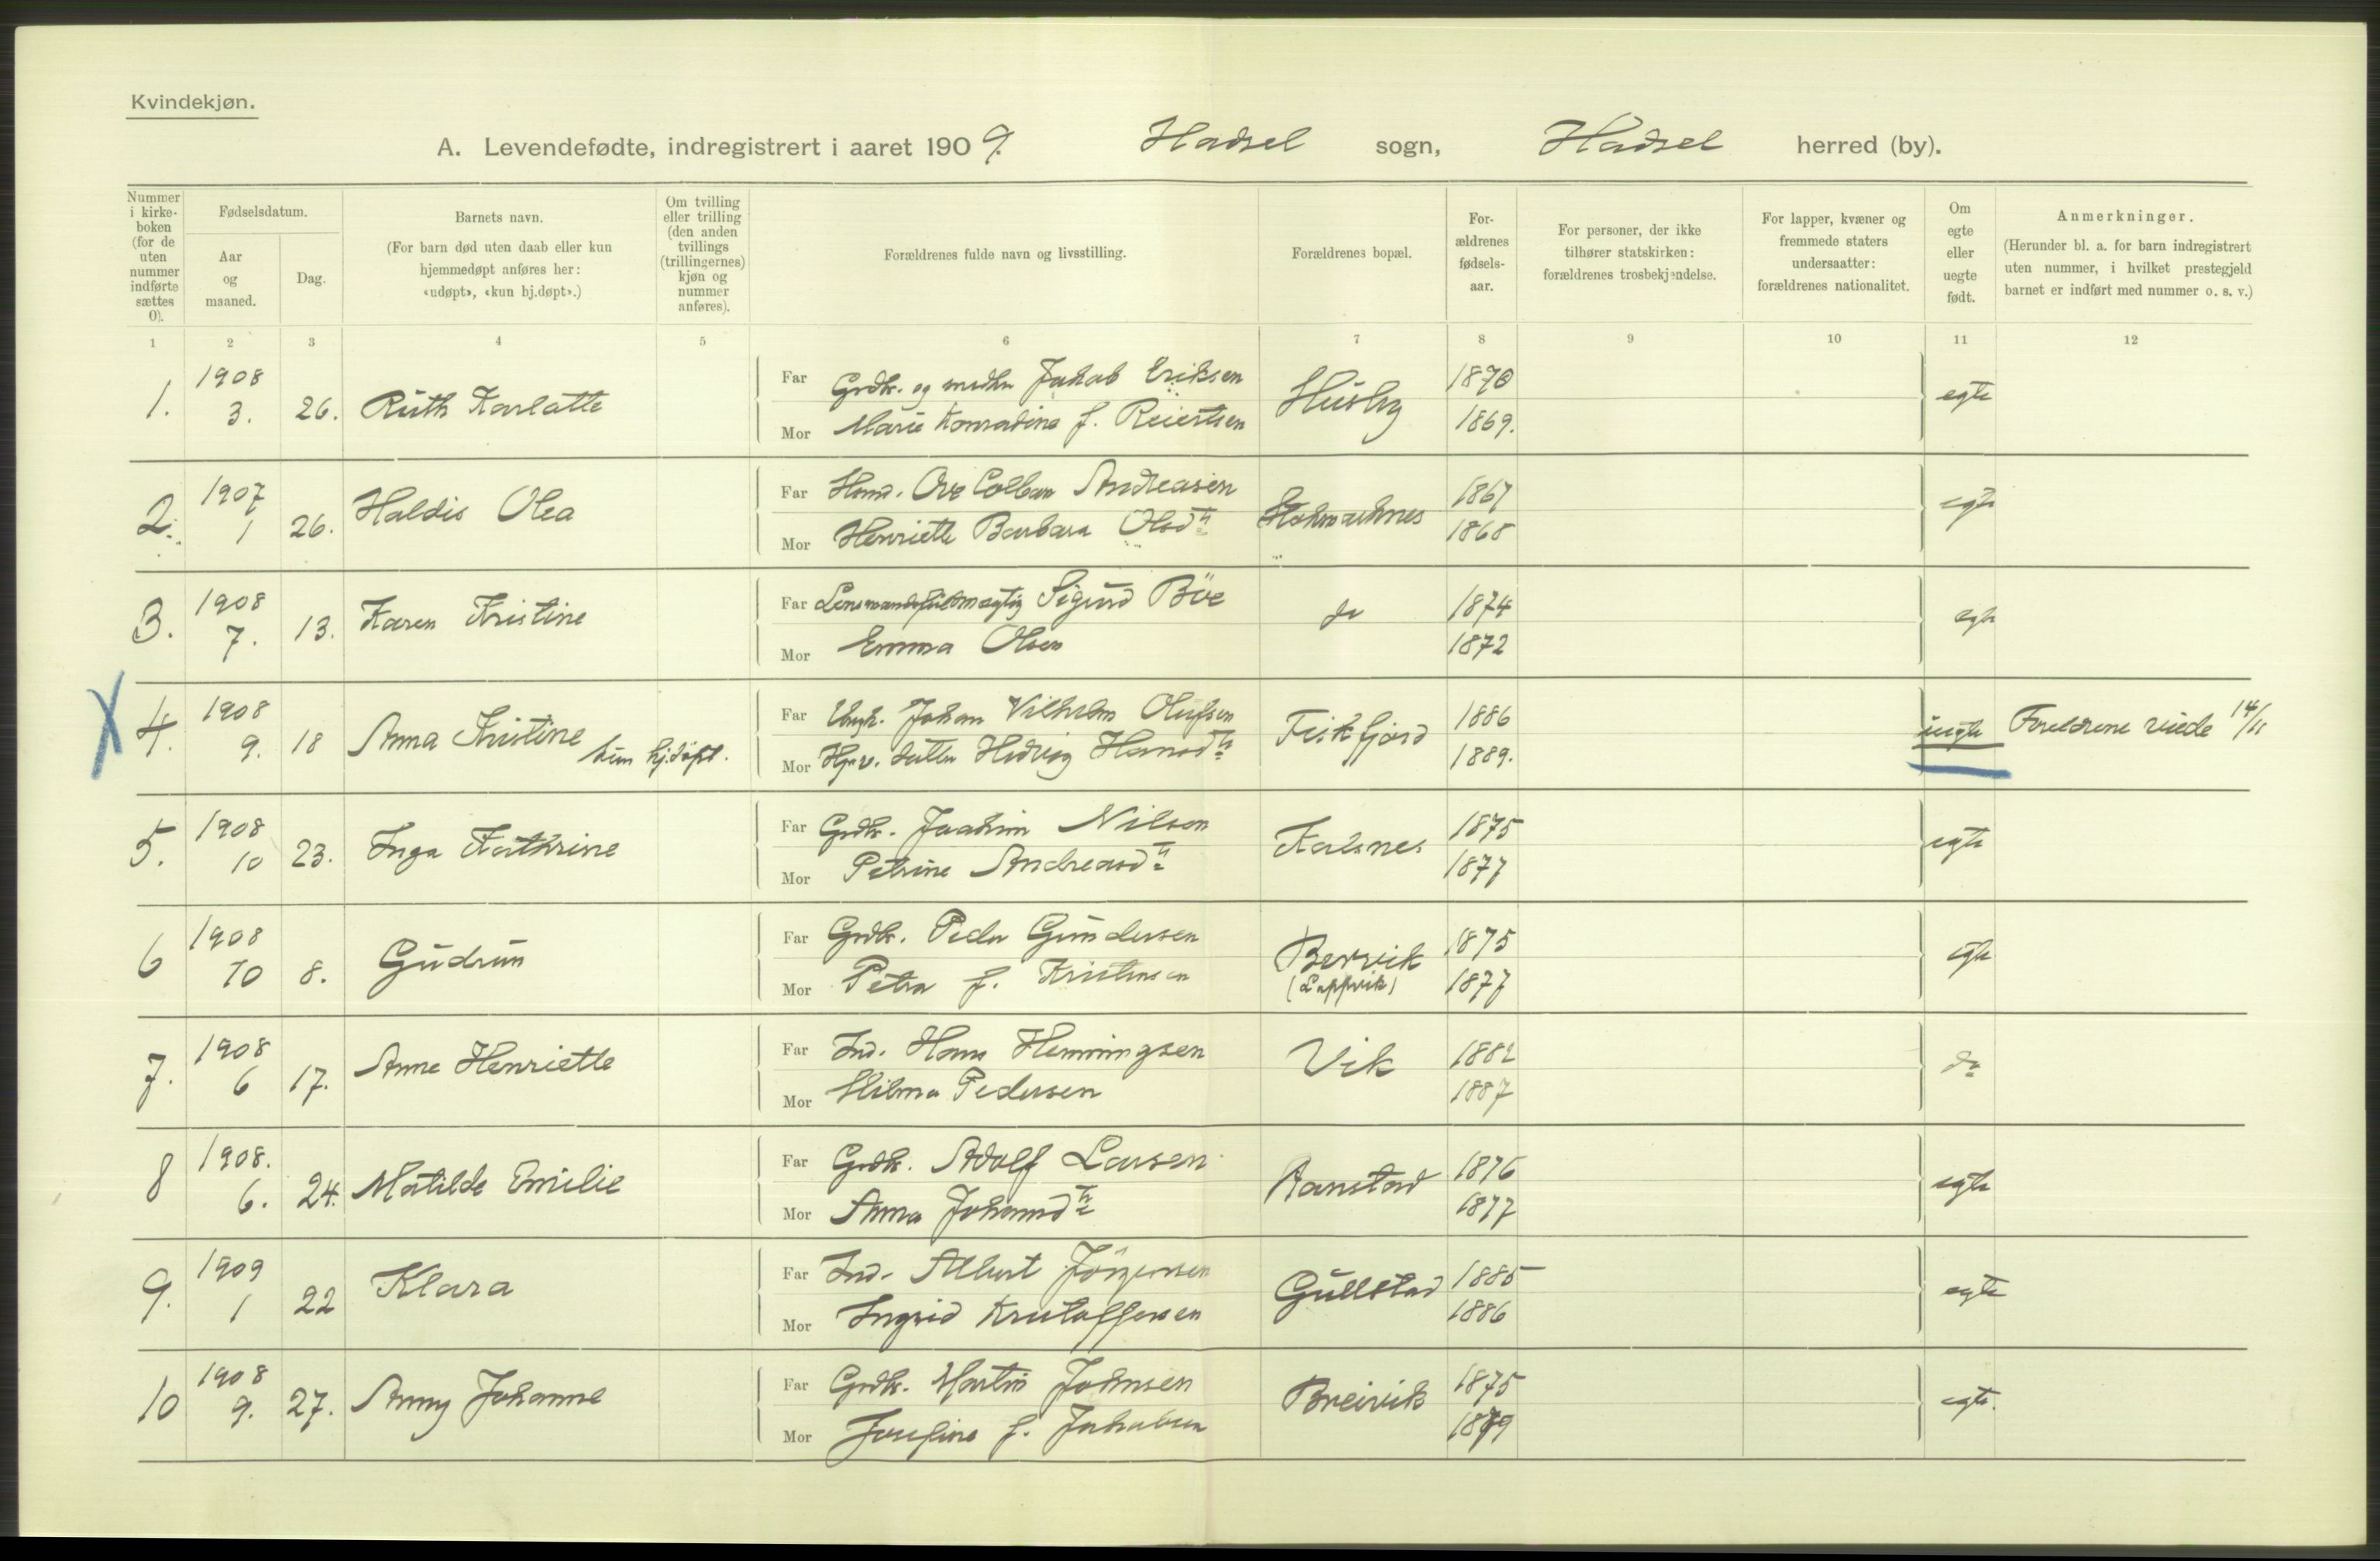 Kvindekjøn.
A. Levendefødte, indregistrert i aaret 1909. Hadsel sogn, Hadsel herred (by).
Nummer i kirke-boken (for de uten nummer indførte sættes 0).
Fødselsdatum.
Aar og maaned.
Dag.
Barnets navn.
(For barn død uten daab eller kun hjemmedøpt anføres her: «udøpt», «kun hj.døpt».)
Om tvilling eller trilling (den anden tvillings (trillingernes) kjøn og nummer anføres).
Forældrenes fulde navn og livsstilling.
Forældrenes bopæl.
For-ældrenes fødsels-aar.
For personer, der ikke tilhører statskirken: forældrenes trosbekjendelse.
For lapper, kvæner og fremmede staters undersaatter: forældrenes nationalitet.
Om egte eller uegte født.
Anmerkninger.
(Herunder bl. a. for barn indregistrert uten nummer, i hvilket prestegjeld barnet er indført med nummer o. s. v.)
1 2 3 4 5 6 7 8 9 10 11 12
1. 1908 3. 26. Ruth Karlotte Far Grdbr. og Jakob Eriksen Husby 1870 egte
Mor Marie Konradine f. Reiertsen 1869.
2. 1907 1 26. Haldis Olea Far Hand. Ove Colban Andreasen Stokmarknes 1867 egte
Mor Henriette Barbara Olsdtr 1868
3. 1908 7. 13. Karen Kristine Far Lensmandsfuldmægtig Sigurd Böe do 1874 egte
Mor Emma Olsen 1872
X 4. 1908 9. 18 Anna Kristine kun hj.døpt. Far Ungk. Johan Vilhelm Olufsen Fiskfjord 1886 uegte Foreldrene viede 14/11
Mor Hjv. datter Hedvig Hansdtr 1889.
5. 1908 10 23. Inga Kathrine Far Grdbr. Joakim Nilsen Kalsnes 1875 egte
Mor Petrine Andreasdtr 1877
6 1908 10 8. Gudrun Far Grdbr. Peder Gundersen 1875 egte
Mor Petra f. Kristensen (Lappvik) 1877
7. 1908 6 17. Anne Henriette Far Ind. Hans Henningsen Vik 1882 do
Mor Hilma Pedersen 1887
8 1908. 6. 24. Matilde Emilie Far Grdbr. Adolf Larsen Ranstad 1876 egte
Mor Anna Johansdtr 1877
9. 1909 1 22 Klara Far Ind. Albert Jörgensen Gullstad 1885 egte
Mor Ingrid Kristoffersen 1886
10 1908 9. 27. Anny Johanne Far Grdbr. Martin Johnsen Breivik 1875 egte.
Mor Josefine f. Jakobsen 1879